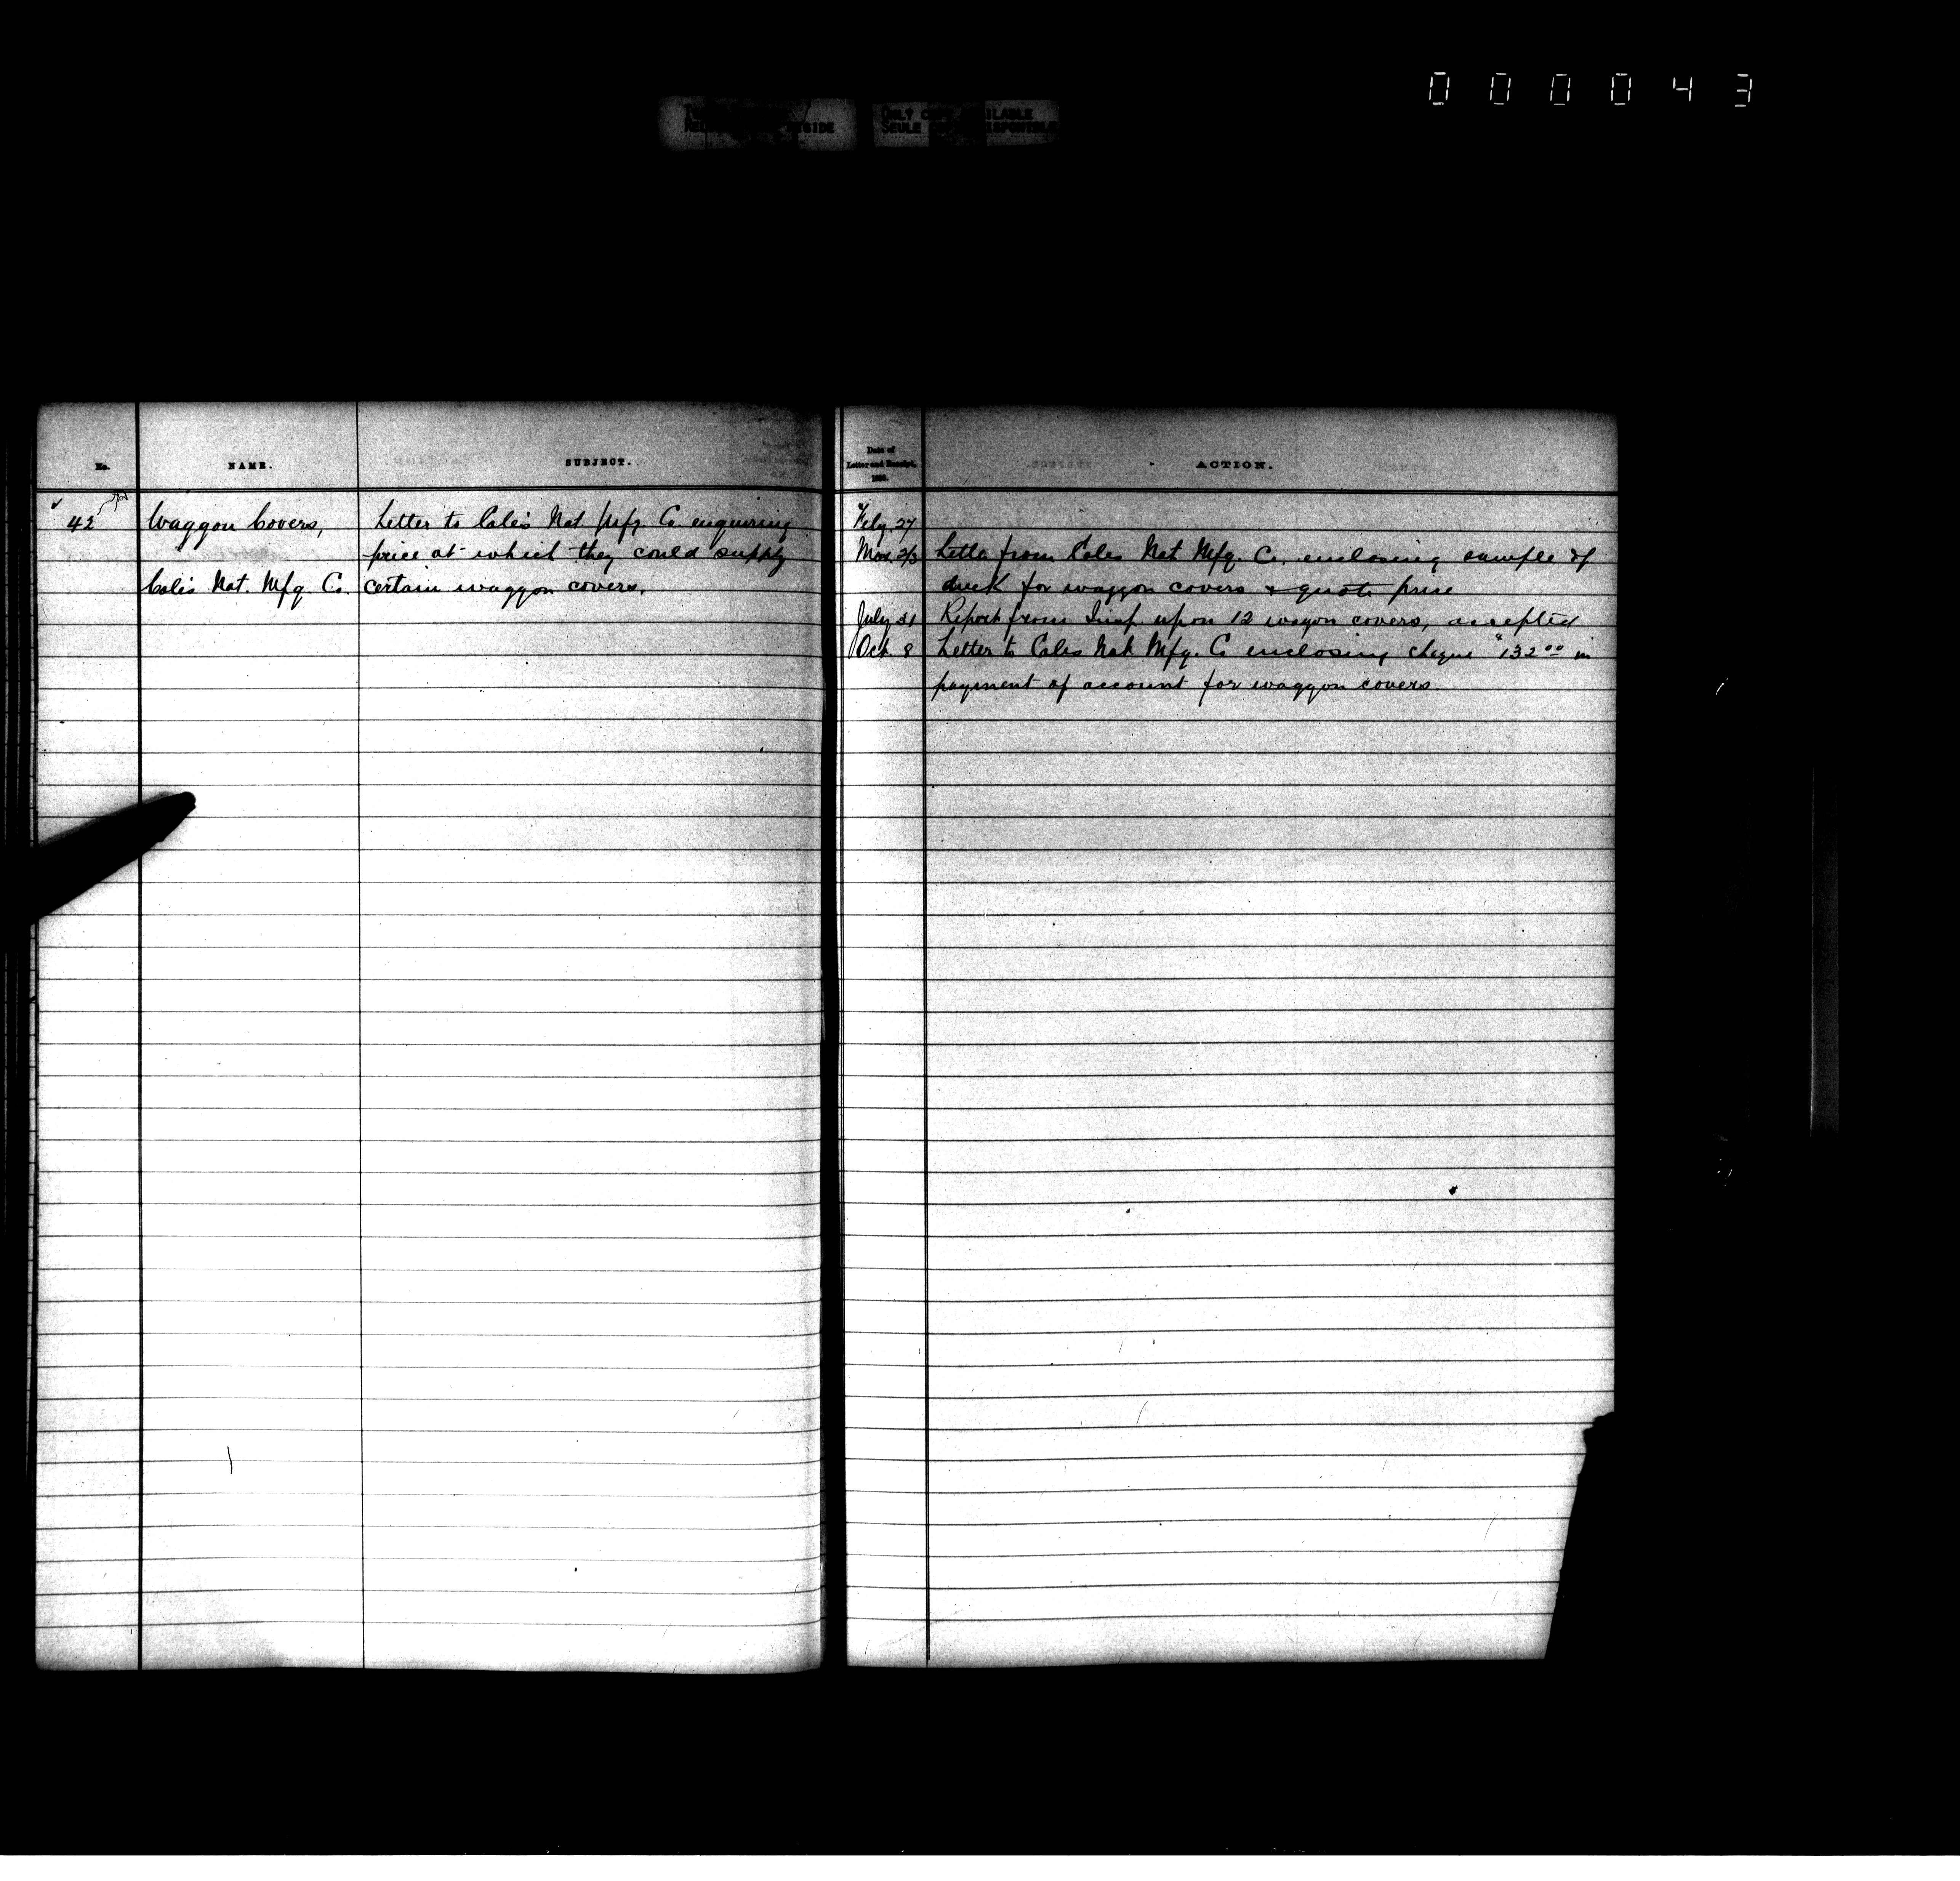 000043
ONLY COPY AVAILABLE
SEULE
No.
NAME.
SUBJECT.
42
Waggon Covers,
Coles Nat. Mfg. Co.
Letter to Coles Nat. Mfg. Co. enquiring
price at which they could supply
certain waggon covers.
Date of
Letter and Receipt,
ACTION.
Feby. 27
Mar. 2/3 Letter from Coles Nat Mfg. Co. enclosing sample of
duck for waggon covers & quote price
July 31 Report from Insp. upon 12 wagon covers, accepted
Oct. 8 Letter to Coles Nat. Mfg. Co enclosing cheque "132.00 in
payment of account for waggon covers.